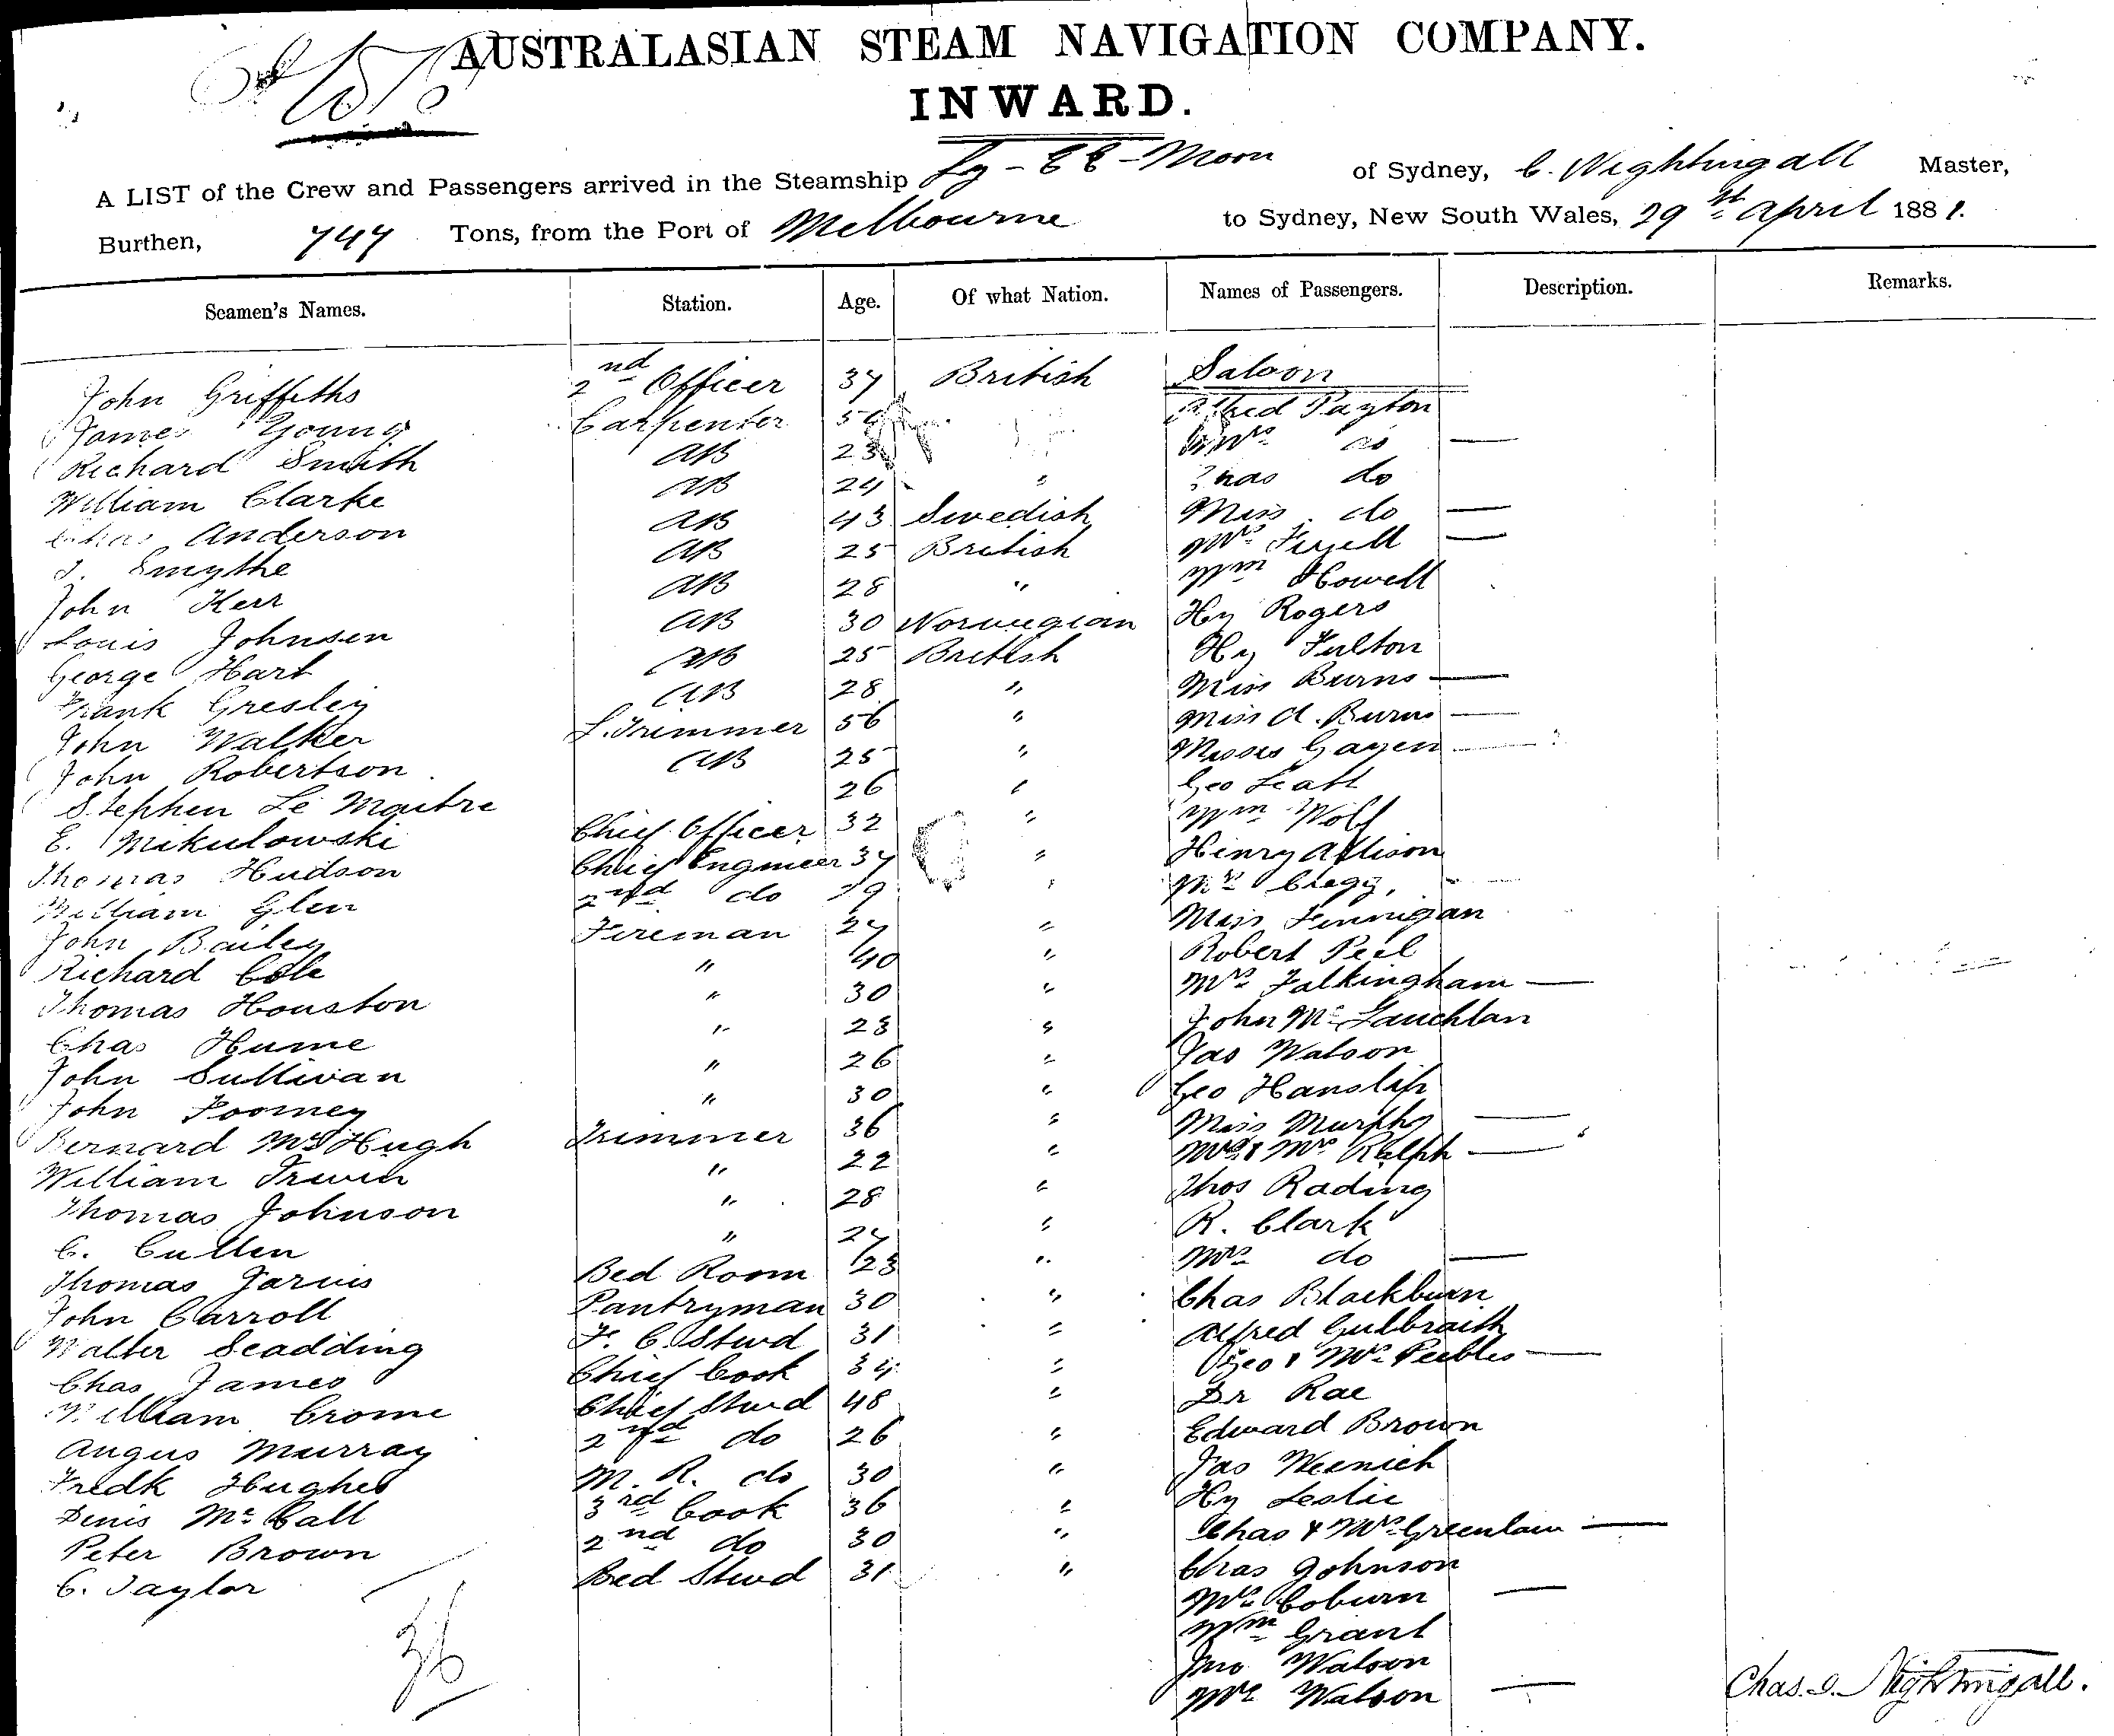 AUSTRALASIAN STEAM NAVIGATION COMPANY.
INWARD.
A LIST of the Crew and Passengers arrived in the Steamship Ly-EE-Moon of Sydney, C. Nightingall Master,
Burthen, 747 Tons, from the Port of Melbourne to Sydney, New South Wales, 29th April 1881.
Seamen's Names. Station. Age. Of what Nation. Names of Passengers. Description. Remarks.
Saloon
John Griffiths 2nd Officer 37 British Alfred Payton
James Young Carpenter Mrs do —
Richard Smith AB 23 do
William Clarke AB 24 " Miss do —
Chas Anderson AB 43 Swedish Mrs —
J. Smythe AB 25 British Wm Howell
John Kerr AB 28 " Hy Rogers
Louis Johnsen AB 30 Norwegian Hy Fulton
George Hart AB 25 British Miss Burns —
Frank Gresley AB 28 " Miss A. Burns —
John Walker L. Trimmer 56 " Misses Gayen —
John Robertson AB 25 " Geo
Stephen Le Maitre 26 " Wm Wolf
E. Mikulowski Chief Officer 32 " Henry Allison
Thomas Hudson Chief Engineer 37 " Cregg,
William Glen 2nd do 29 " Miss Finnigan
John Bailey Fireman 27 " Robert Peel
Richard Cole " 40 " Mrs Falkingham —
Thomas Houston " 30 " John McLauchlan
Chas Hume " 23 " Jas Watson
John Sullivan " 26 " Geo Hanslip
John Toomey " 30 " Miss Murphy —
Bernard McHugh Trimmer 36 " Mr & Mrs Ralph —
William Irwin " 22 " Thos Rading
Thomas Johnson " 28 " R. Clark
C. Cullen " 27 " Mrs do —
Thomas Jarvis Bed Room 23 " Chas Blackburn
John Carroll Pantryman 30 " Alfred Gulbraith
Walter Scadding F. C. Stwd 31 " Geo & Mrs Peebles —
Chas James Chief Cook 34 " Dr Rae
William Crome Chief Stwd 48 " Edward Brown
Angus Murray 2nd do 26 " Jas
Fredk Hughes M. R. do 30 " Hy Leslie
Denis McCall 3rd Cook 36 " Chas & Mrs Greenlaw —
Peter Brown 2nd do 30 " Chas Johnson
C. Taylor Bed Stwd 31 " Mrs Coburn —
Wm Grant
36
Jno Watson
Mrs Watson —
Chas. Nightingall.